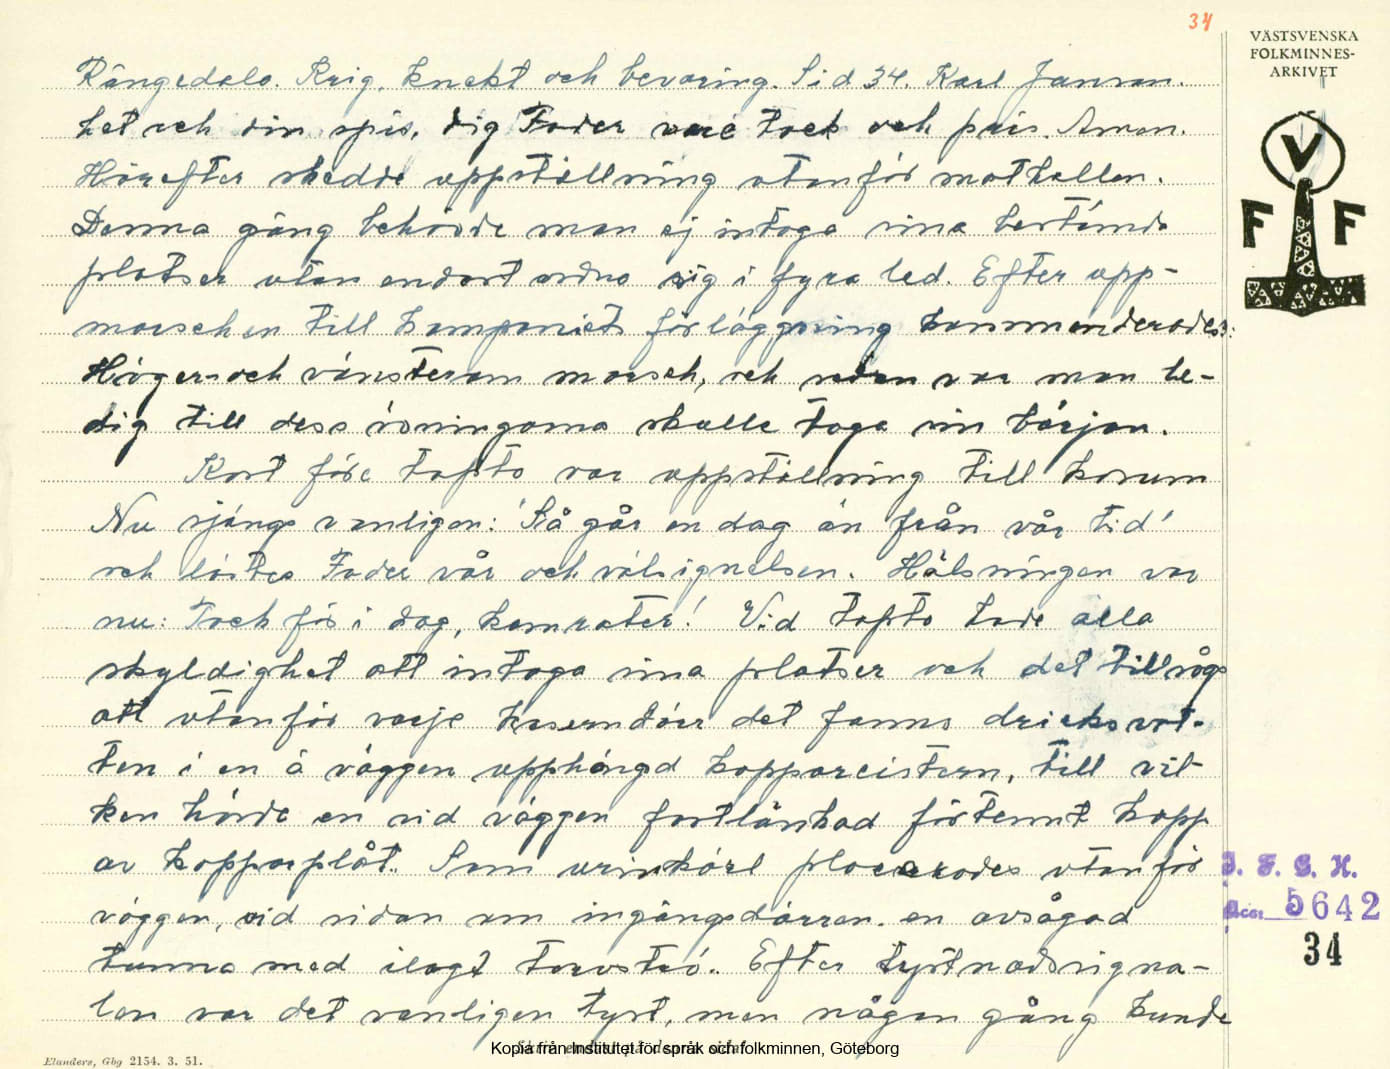 34
VÄSTSVENSKA
FOLKMINNES-
ARKIVET
V
F F
Rångedala. Krig, knekt och bevaring. Sid 34. Karl Janson.
het och din spis, dig Fader vare tack och pris. Amen.
Härefter skedde uppställning utanför mathallen.
Denna gång behövde man ej intaga sina bestämda
platser utan endast ordna sig i fyra led. Efter upp-
marschen till kompaniets förläggning kommenderades:
Höger och vänsterom marsch, och sedan var man le-
dig till dess övningarna skulle taga sin början.
Kort före tapto var uppställning till korum
Nu sjöngs vanligen: 'Så går en dag än från vår tid'
och lästes Fader vår och välsignelsen. Hälsningen var
nu: Tack för i dag, kamrater! Vid tapto hade alla
skyldighet att intaga sina platser och det tillsågs
att utanför varje kaserndörr det fanns dricksvat-
ten i en å väggen upphängd kopparcistern, till vil-
ken hörde en vid väggen fastlänkad förtennt kopp
av kopparplåt. Som urinkärl placerades utanför
väggen, vid sidan om ingångsdörren en avsågad
tunna med ilagt torvströ. Efter tystnadssigna-
len var det vanligen tyst, men någon gång kunde
I. F. G. H.
Acc: 5642
34
Elanders, Gbg 2154. 3. 51.
Kopia från Institutet för språk och folkminnen, Göteborg